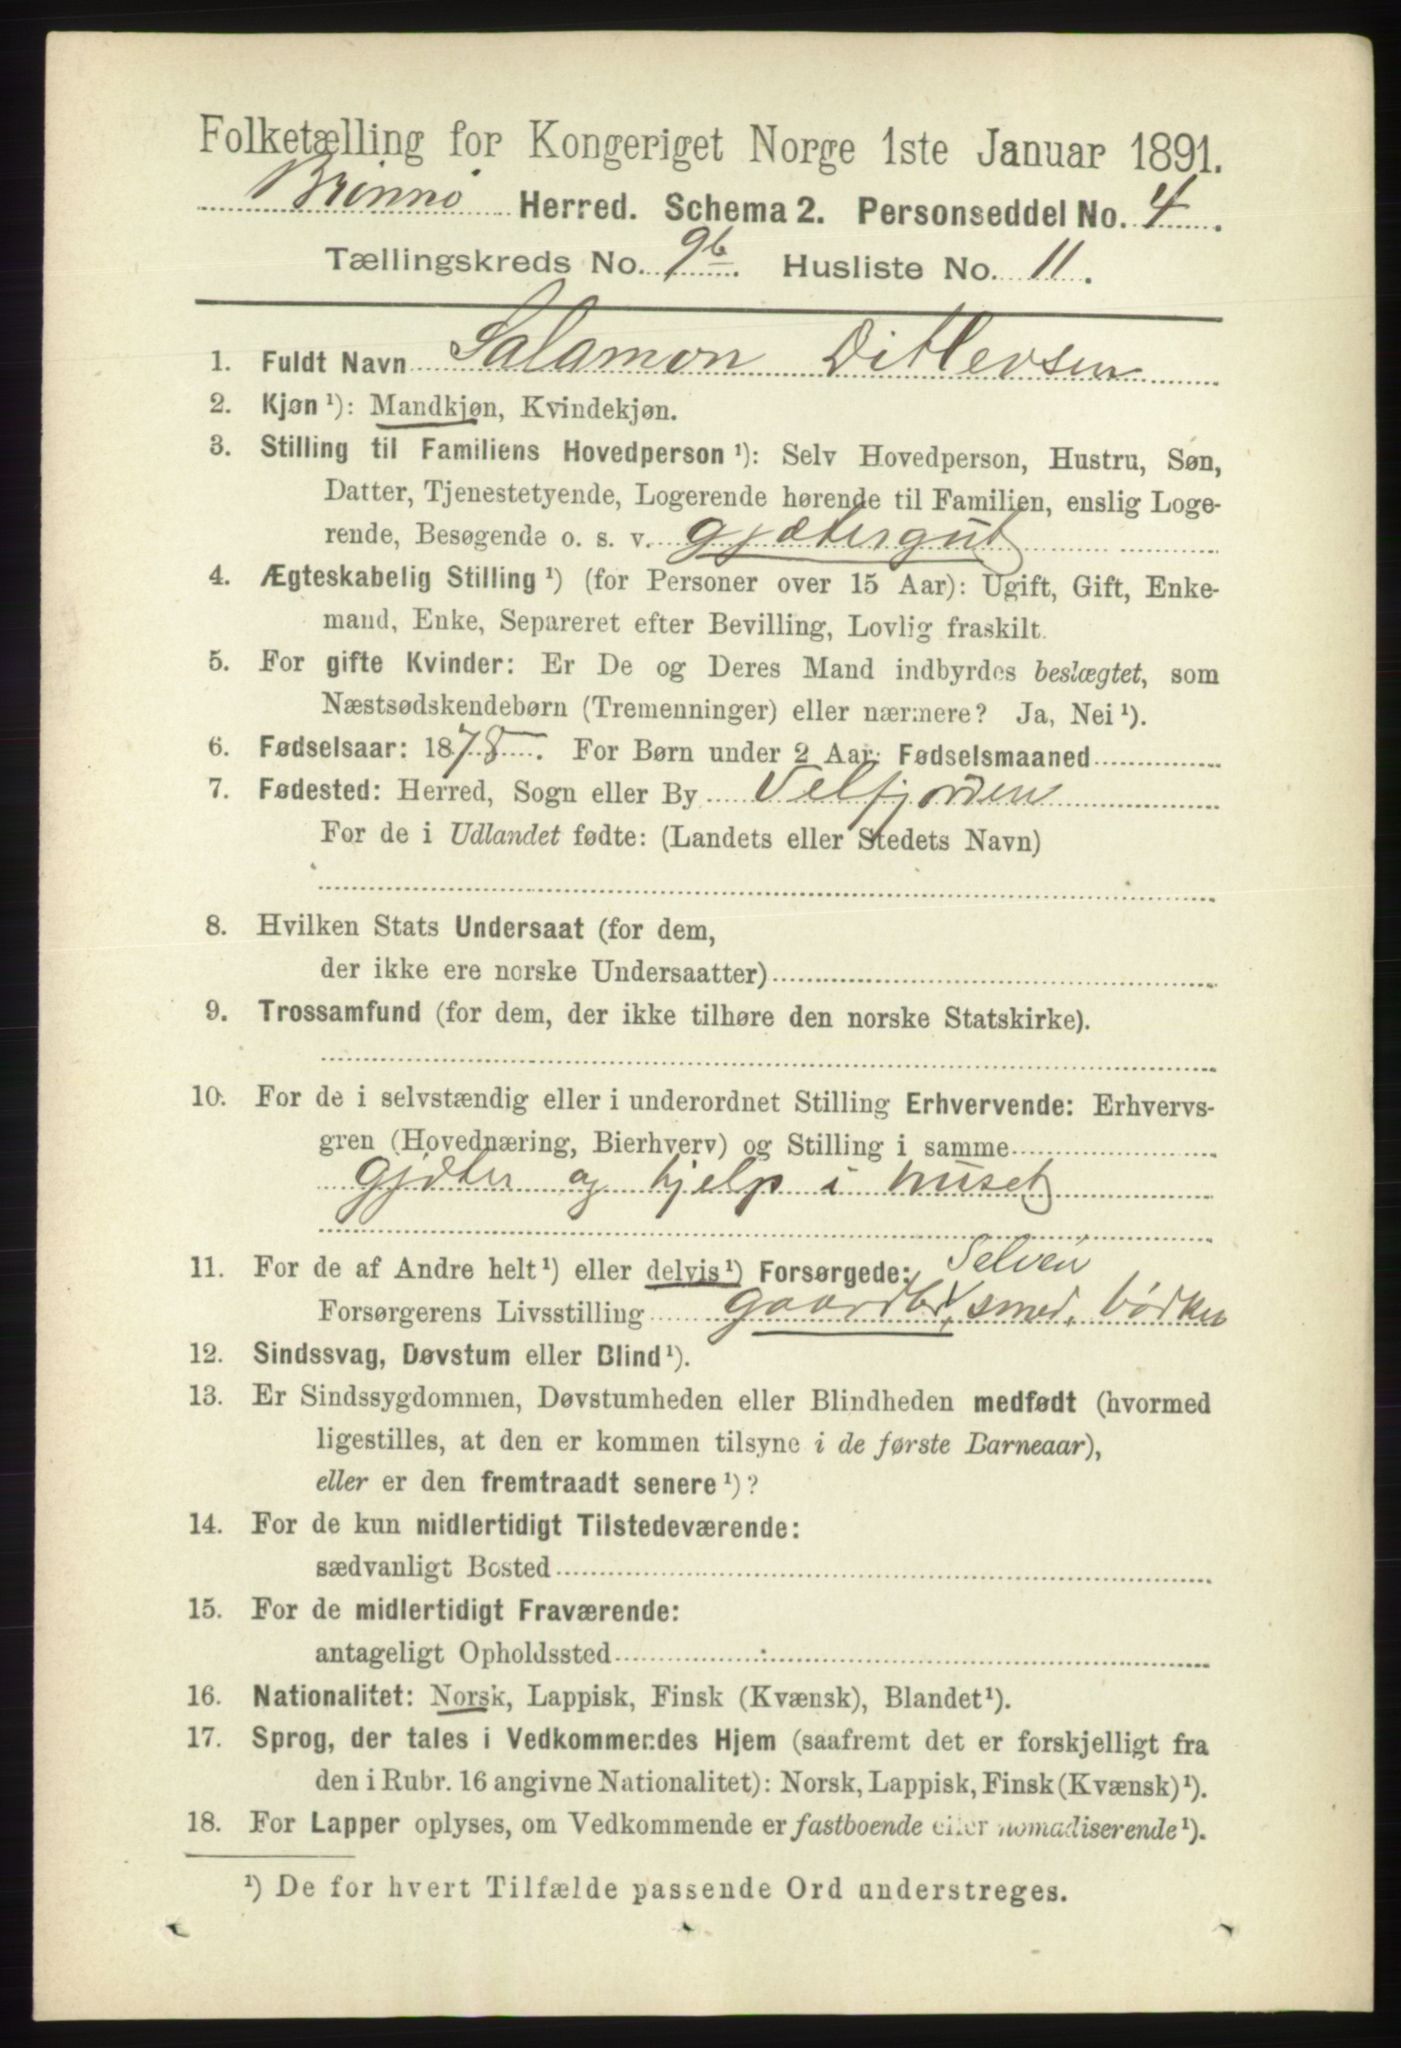 Folketælling for Kongeriget Norge 1ste Januar 1891.
Brønnø Herred. Schema 2. Personseddel No. 4.
Tællingskreds No. 9b. Husliste No. 11.
1. Fuldt Navn Salamon Ditlevsen
2. Kjøn ¹): Mandkjøn, Kvindekjøn.
3. Stilling til Familiens Hovedperson ¹): Selv Hovedperson, Hustru, Søn,
Datter, Tjenestetyende, Logerende hørende til Familien, enslig Loge-
rende, Besøgende o. s. v. gjætergut
4. Ægteskabelig Stilling ¹) (for Personer over 15 Aar): Ugift, Gift, Enke-
mand, Enke, Separeret efter Bevilling, Lovlig fraskilt.
5. For gifte Kvinder: Er De og Deres Mand indbyrdes beslægtet, som
Næstsødskendebørn (Tremenninger) eller nærmere? Ja, Nei ¹).
6. Fødselsaar: 1878. For Børn under 2 Aar: Fødselsmaaned
7. Fødested: Herred, Sogn eller By Velfjorden
For de i Udlandet fødte: (Landets eller Stedets Navn)
8. Hvilken Stats Undersaat (for dem,
der ikke ere norske Undersaatter)
9. Trossamfund (for dem, der ikke tilhøre den norske Statskirke).
10. For de i selvstændig eller i underordnet Stilling Erhvervende: Erhvervs-
gren (Hovednæring, Bierhverv) og Stilling i samme
gjæter og hjelp i huset
11. For de af Andre helt ¹) eller delvis ¹) Forsørgede:
Forsørgerens Livsstilling Selvei gaardbr, smed, bødker
12. Sindssvag, Døvstum eller Blind ¹).
13. Er Sindssygdommen, Døvstumheden eller Blindheden medfødt (hvormed
ligestilles, at den er kommen tilsyne i de første Barneaar),
eller er den fremtraadt senere ¹)?
14. For de kun midlertidigt Tilstedeværende:
sædvanligt Bosted
15. For de midlertidigt Fraværende:
antageligt Opholdssted
16. Nationalitet: Norsk, Lappisk, Finsk (Kvænsk), Blandet ¹).
17. Sprog, der tales i Vedkommendes Hjem (saafremt det er forskjelligt fra
den i Rubr. 16 angivne Nationalitet): Norsk, Lappisk, Finsk (Kvænsk) ¹).
18. For Lapper oplyses, om Vedkommende er fastboende eller nomadiserende ¹).
¹) De for hvert Tilfælde passende Ord understreges.